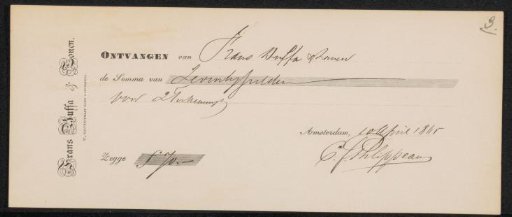 3.
Frans Buffa & Zonen.
ONTVANGEN van Frans Buffa & Zonen
de Somma van Zeventig gulden
voor 2 Teekeningen
Amsterdam, 10 April 1865
Zegge f 70.-